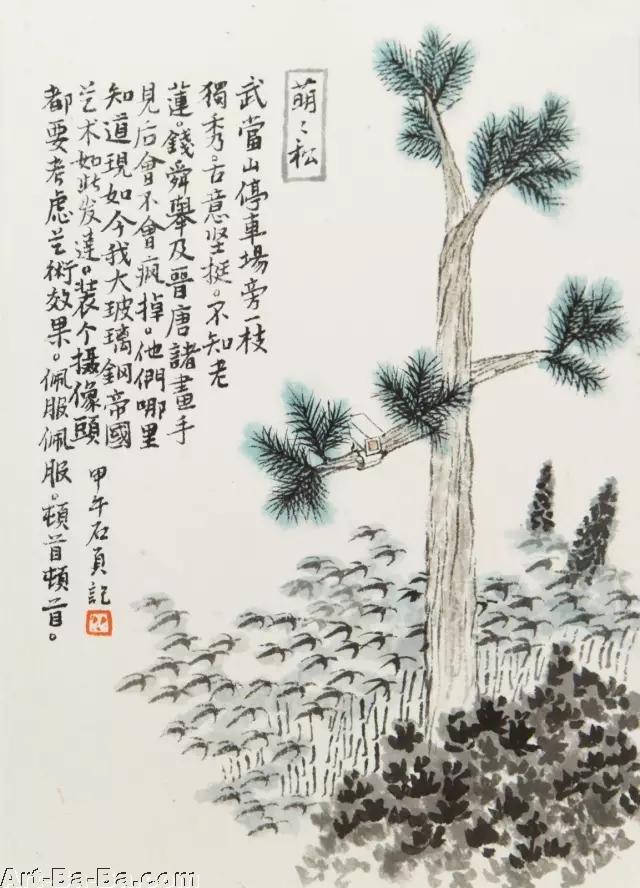 萌〻松
武當山停車場旁一枝
獨秀。古意坚挺。不知老
蓮。錢舜舉及晉唐諸畫手
見后會不會瘋掉。他們哪里
知道現如今我大玻璃鋼帝國
艺术如此发達。装个摄像頭
都要考虑艺術效果。佩服佩
服。頓首頓首。
甲午石頁記
Art-Ba-Ba.com
Art-Ba-Ba.com